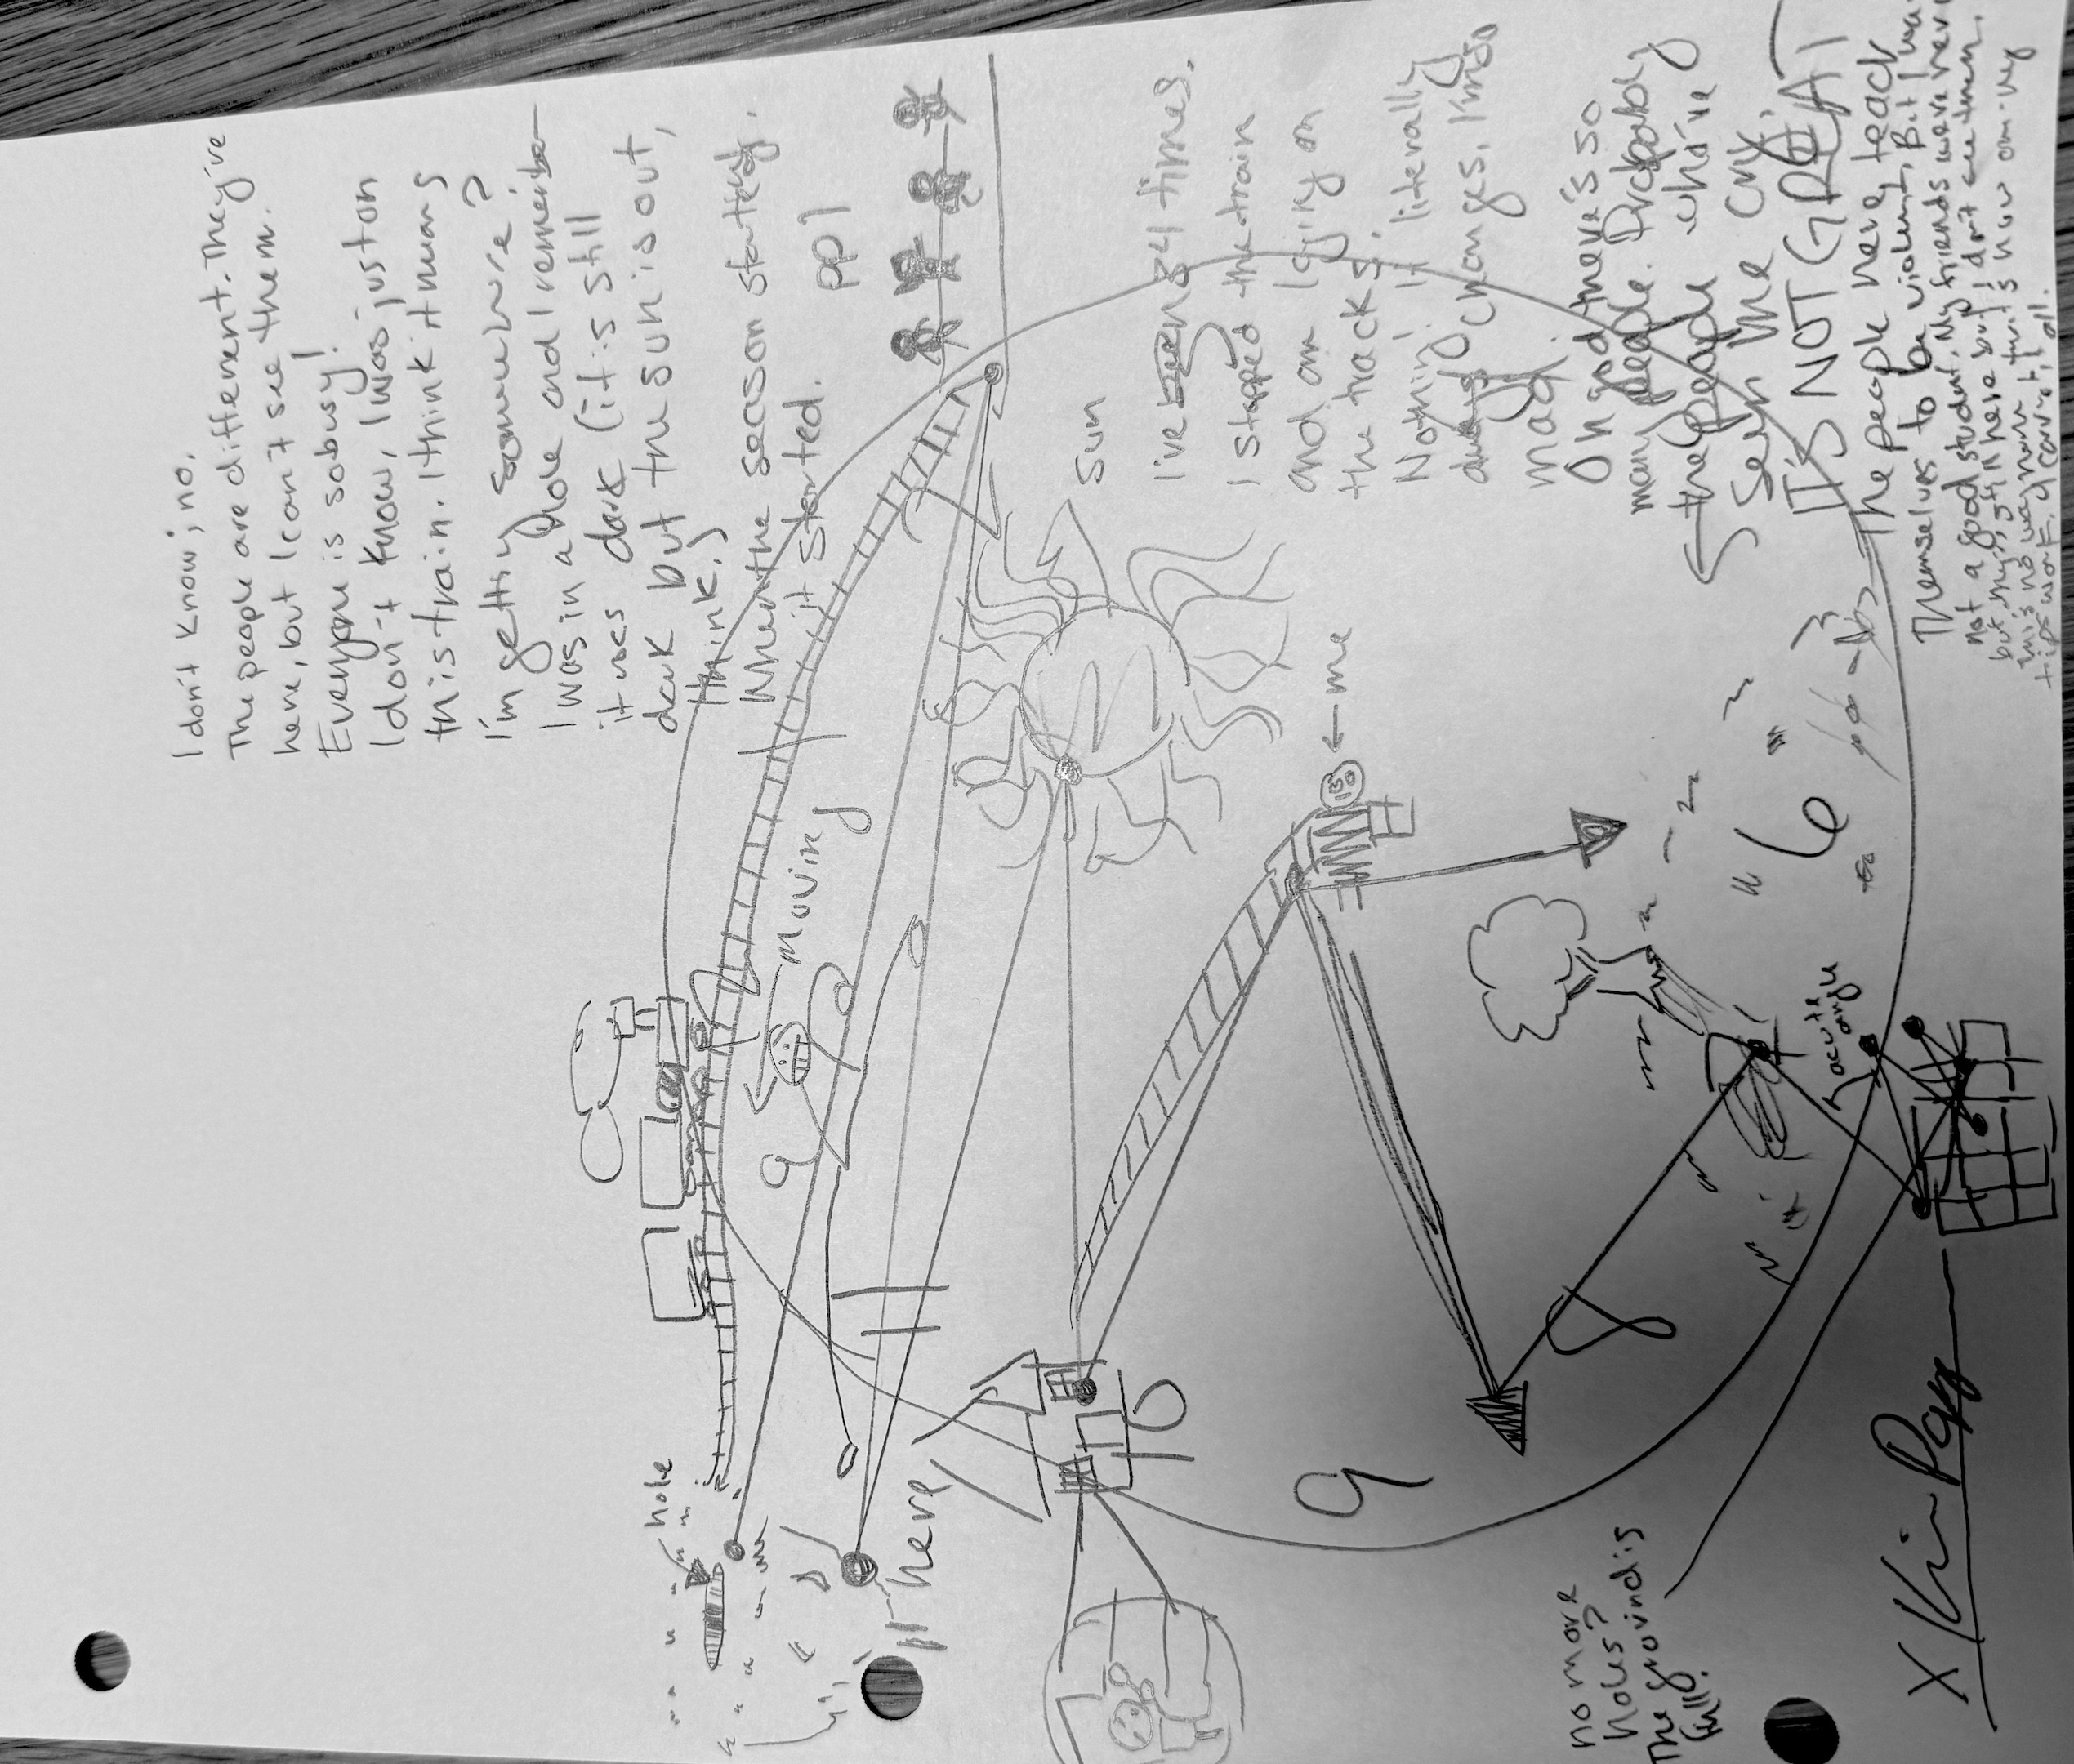 I don't know, no.
The people are different. They're
here, but I can't see them.
Everyone is so busy!
I don't know, I was just on
this train. I think it means
I'm getting somewhere?
I was in a hole and I remember
it was dark (it is still
dark but the sun is out,
I think.)
When the season started,
it started.
ppl
sun
I've 84 times.
I stopped the train
and am lying on
the tracks.
Nothing. It literally
changes. I'm so
mad.
Oh god there's so
many people. Probably
the people who've
seen me cry.
IT'S NOT GREAT
The people here teach
themselves to be violent. But I was
not a good student. My friends were here
but they're still here but I don't see them.
this no way
this work. I can't, all.
moving
9
← me
hole
ppl here
11
10
9
8
6
acute
angle
no more
holes?
The ground is
full.
X